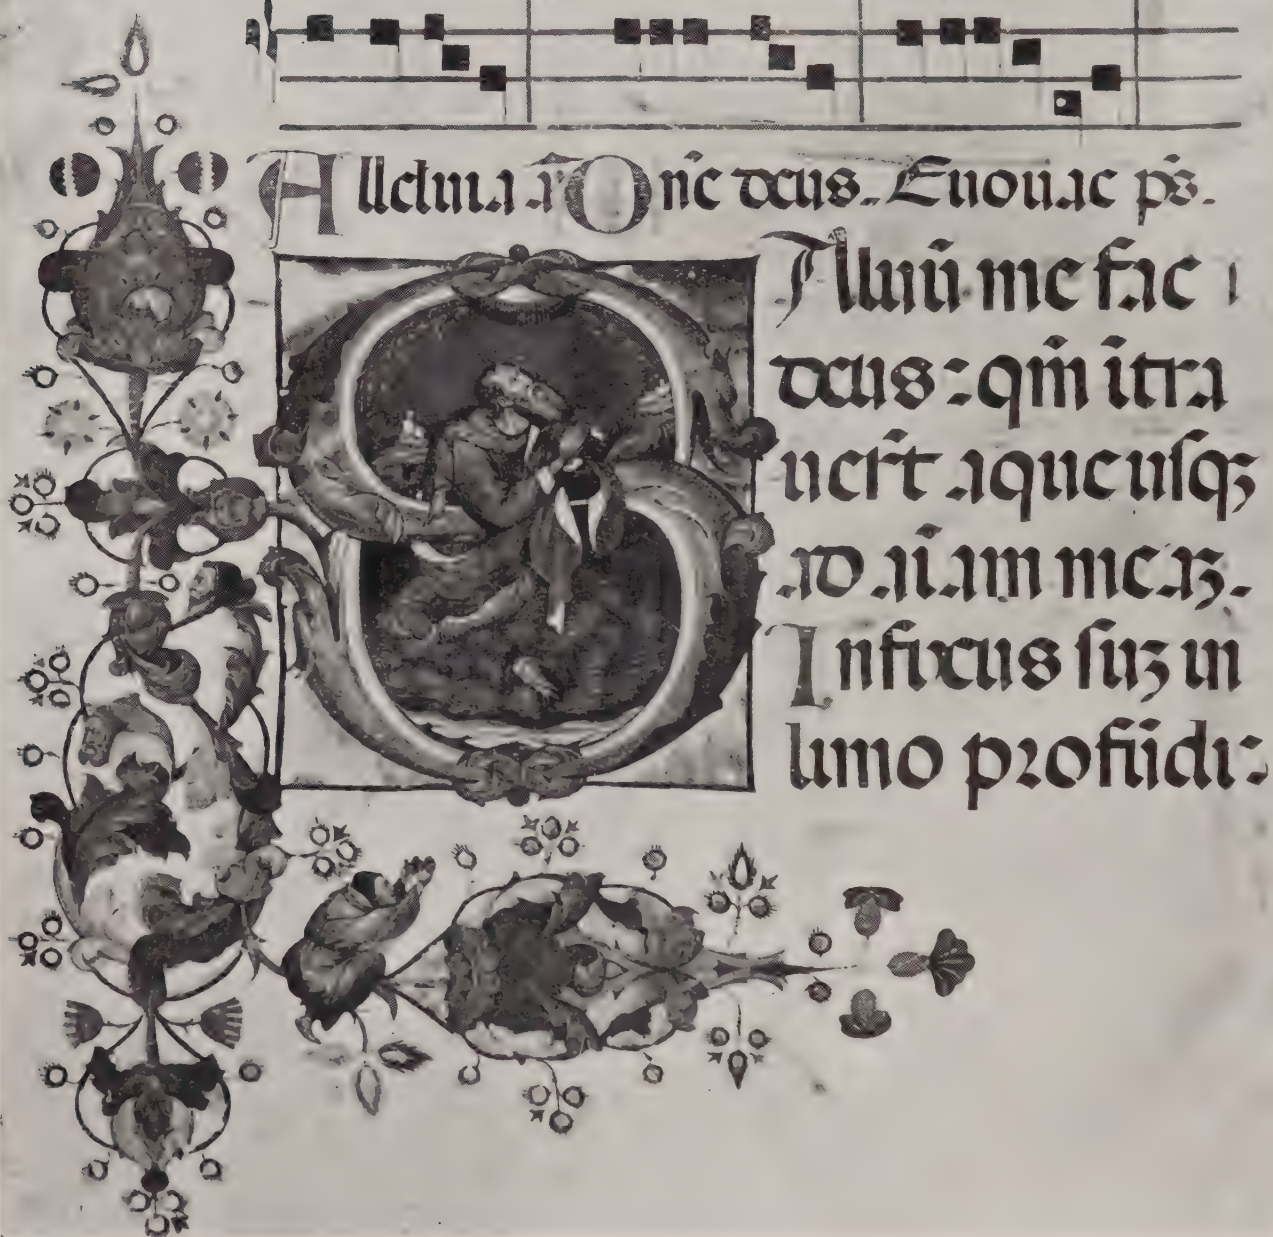 Alleluia. a͞ One deus. Euouae p̄s.
S Aluū me fac
deus: qm̄ itra
uer̄t aque usqꝫ
ad aīam meaꝫ.
Infixus suꝫ in
limo profūdi: